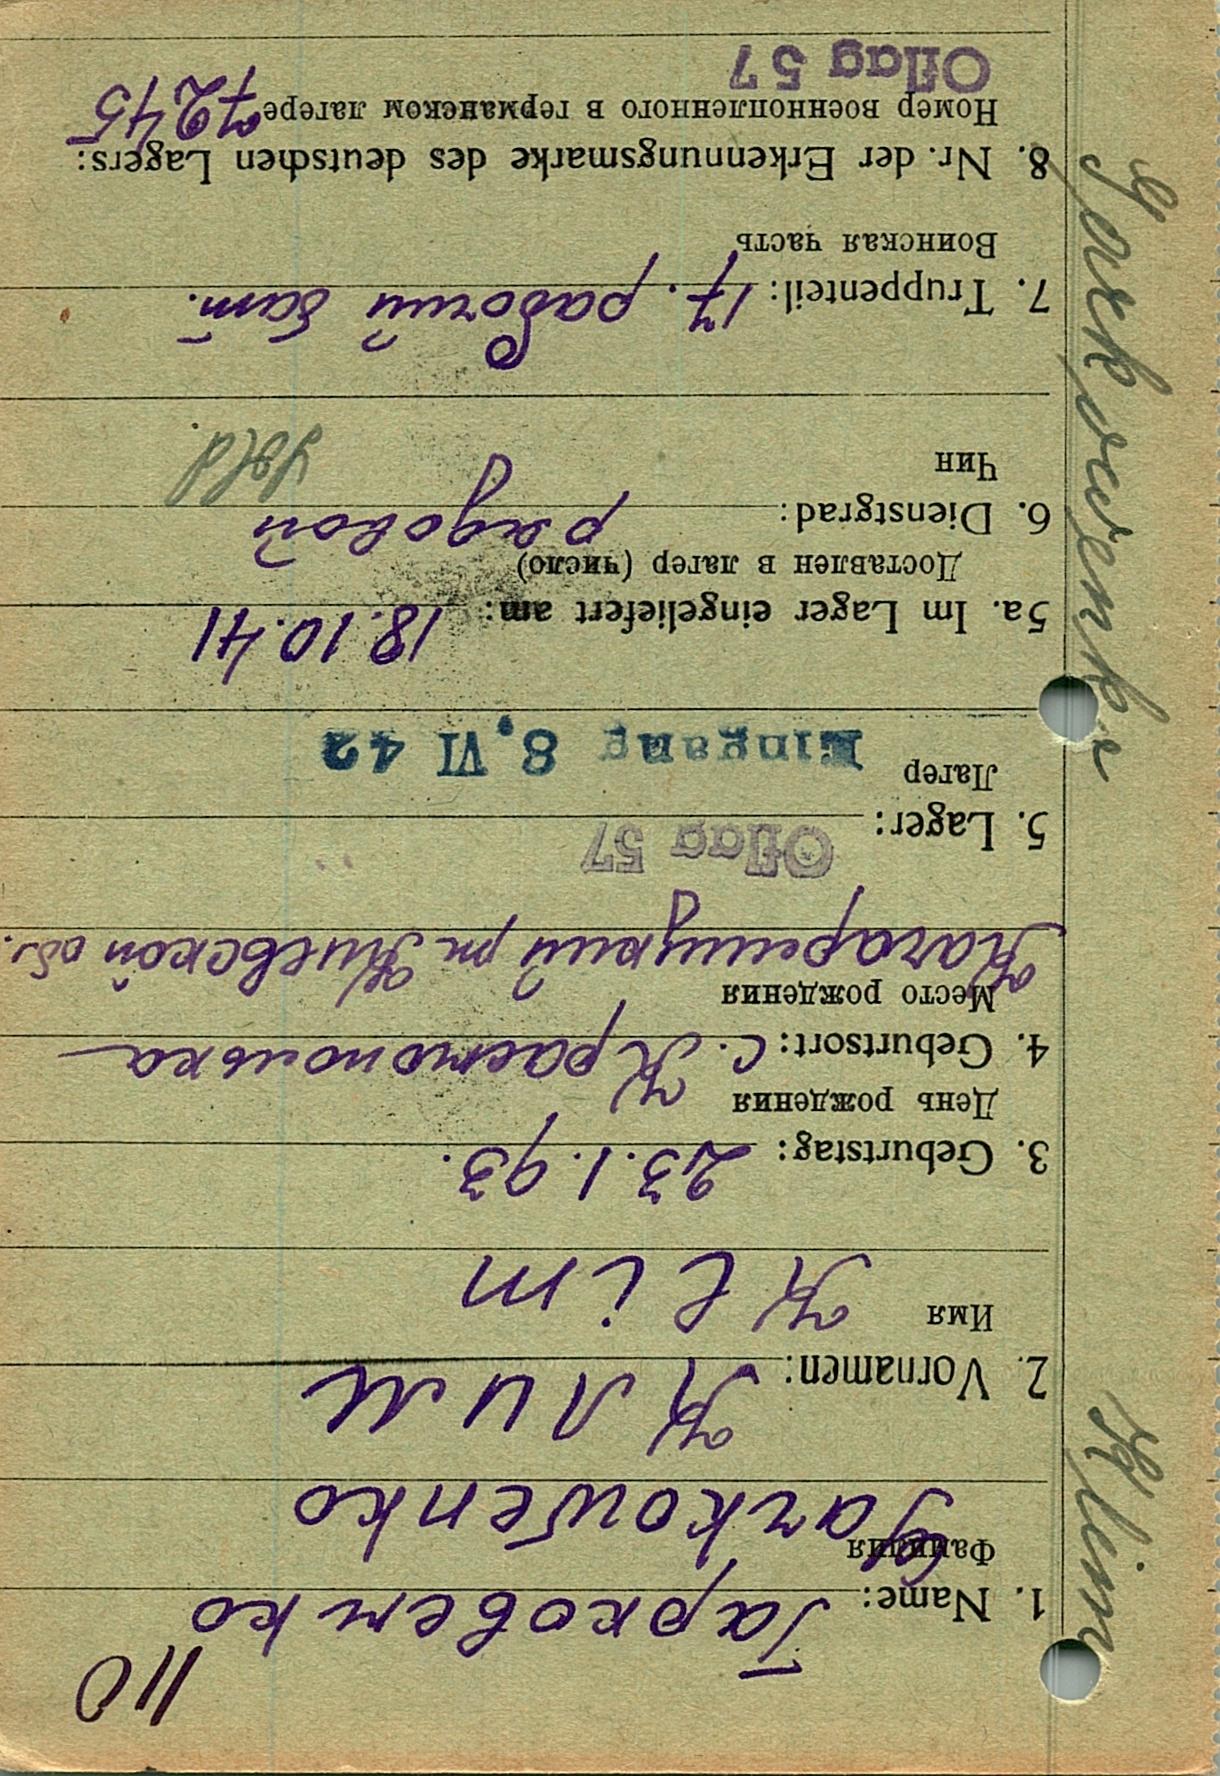 110
1. Name: Гарковенко
Фамилия
Garkowenko
2. Vornamen: Клим
Имя
Klim
3. Geburtstag: 23.1.93.
День рождения
4. Geburtsort: с.
Место рождения
Кагарлицкий рн Киевской об.
5. Lager: Oflag 57
Лагер
Eingang 8. VI 42
5a. Im Lager eingeliefert am: 18.10.41
Доставлен в лагер (число)
6. Dienstgrad: рядовой
Чин
7. Truppenteil: 17. рабочий бат.
Воинская часть
8. Nr. der Erkennungsmarke des deutschen Lagers:
Номер военнопленного в германском лагере 7245
Oflag 57
Klim Garkowenko